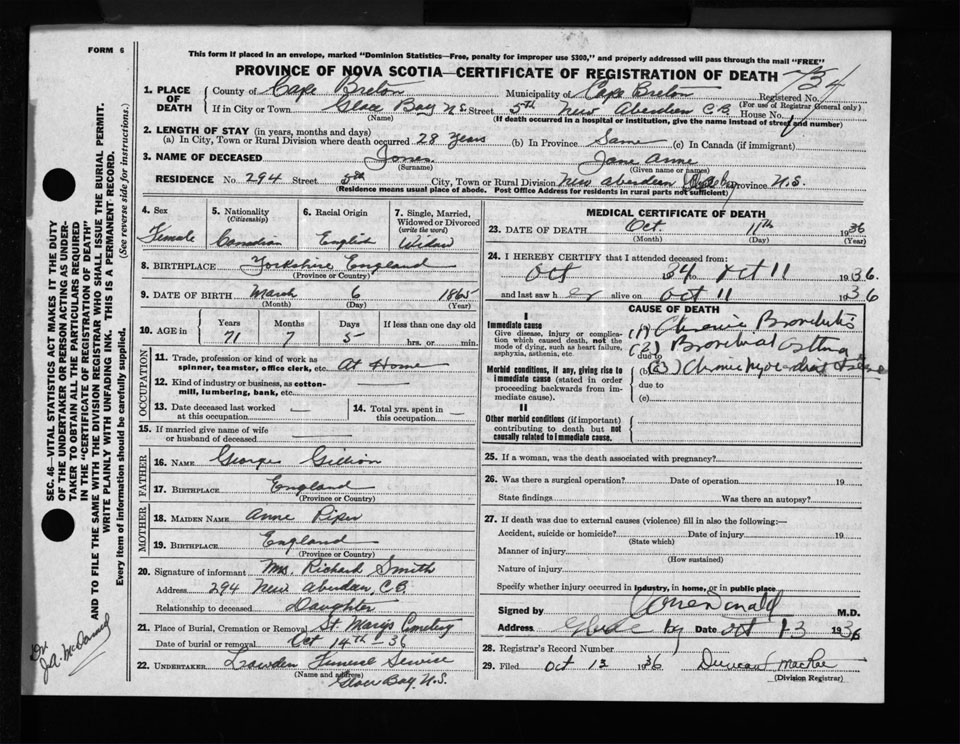 FORM 6
This form if placed in an envelope, marked "Dominion Statistics—Free, penalty for improper use $300," and properly addressed will pass through the mail "FREE"
PROVINCE OF NOVA SCOTIA—CERTIFICATE OF REGISTRATION OF DEATH
1. PLACE OF DEATH
County of Cape Breton Municipality of Cape Breton Registered No.
(For use of Registrar General only)
If in City or Town Glace Bay N.S. Street 5th New Aberdeen C.B. House No.
(Name) (If death occurred in a hospital or institution, give the name instead of street and number)
2. LENGTH OF STAY (in years, months and days)
(a) In City, Town or Rural Division where death occurred 28 years (b) In Province Same (c) In Canada (if immigrant)
3. NAME OF DECEASED Jones Jane Anne
(Surname) (Given name or names)
RESIDENCE No. 294 Street 5th City, Town or Rural Division New Aberdeen Glace Bay Province N.S.
(Residence means usual place of abode. Post Office Address for residents in rural parts not sufficient)
4. Sex
Female
5. Nationality
(Citizenship)
Canadian
6. Racial Origin
English
7. Single, Married, Widowed or Divorced
(write the word)
Widow
8. BIRTHPLACE Yorkshire England
(Province or Country)
9. DATE OF BIRTH March 6 1865
(Month) (Day) (Year)
10. AGE in
Years Months Days If less than one day old
71 7 5 hrs. or min.
OCCUPATION
11. Trade, profession or kind of work as spinner, teamster, office clerk, etc. At Home
12. Kind of industry or business, as cotton-mill, lumbering, bank, etc. —
13. Date deceased last worked at this occupation —
14. Total yrs. spent in this occupation —
15. If married give name of wife or husband of deceased
FATHER
16. NAME George
17. BIRTHPLACE England
(Province or Country)
MOTHER
18. MAIDEN NAME Anne Piper
19. BIRTHPLACE England
(Province or Country)
20. Signature of informant Mrs. Richard Smith
Address 294 New Aberdeen, C.B.
Relationship to deceased Daughter
21. Place of Burial, Cremation or Removal St. Mary's Cemetery
Date of burial or removal Oct 14th - 36
22. UNDERTAKER Funeral Service
(Name and address)
Glace Bay, N.S.
MEDICAL CERTIFICATE OF DEATH
23. DATE OF DEATH Oct. 11th 1936
(Month) (Day) (Year)
24. I HEREBY CERTIFY that I attended deceased from:
Oct 1934 to Oct 11 1936.
and last saw her alive on Oct 11 1936
CAUSE OF DEATH
I
Immediate cause
Give disease, injury or complication which caused death, not the mode of dying, such as heart failure, asphyxia, asthenia, etc.
(1) Chronic Bronchitis
(2) Bronchial Asthma
due to
Morbid conditions, if any, giving rise to immediate cause (stated in order proceeding backwards from immediate cause).
(b) (3) Chronic Myocardial
due to
(c)
II
Other morbid conditions (if important) contributing to death but not causally related to immediate cause.
25. If a woman, was the death associated with pregnancy?
26. Was there a surgical operation? Date of operation 19
State findings Was there an autopsy?
27. If death was due to external causes (violence) fill in also the following:—
Accident, suicide or homicide? Date of injury 19
(State which)
Manner of injury
(How sustained)
Nature of injury
Specify whether injury occurred in industry, in home, or in public place
Signed by M.D.
Address Glace Bay Date Oct 13 1936
28. Registrar's Record Number
29. Filed Oct 13 1936 Duncan MacRae
(Division Registrar)
SEC. 46—VITAL STATISTICS ACT MAKES IT THE DUTY
OF THE UNDERTAKER OR PERSON ACTING AS UNDER-
TAKER TO OBTAIN ALL THE PARTICULARS REQUIRED
IN THE "CERTIFICATE OF REGISTRATION OF DEATH"
AND TO FILE THE SAME WITH THE DIVISION REGISTRAR WHO SHALL ISSUE THE BURIAL PERMIT.
WRITE PLAINLY WITH UNFADING INK. THIS IS A PERMANENT RECORD.
Every item of information should be carefully supplied. (See reverse side for instructions.)
Dr